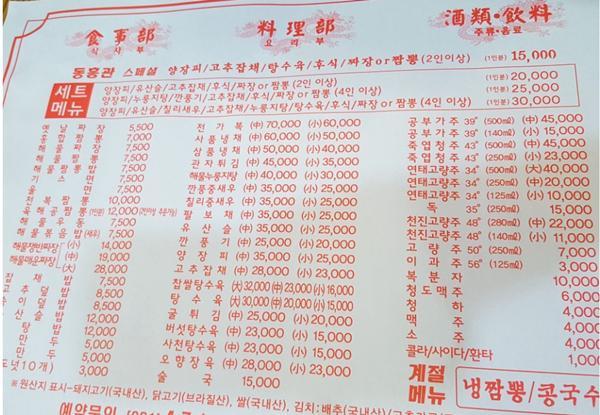 食事部
식사부
料理部
요리부
酒類・飲料
주류・음료
동흥관 스페셜 양장피/고추잡채/탕수육/후식/짜장or짬뽕 (2인이상) (1인분) 15,000
세트메뉴
양장피/유산슬/고추잡채/후식/짜장or짬뽕 (2인 이상) (1인분) 20,000
양장피/누룽지탕/깐풍기/고추잡채/후식/짜장or짬뽕 (4인 이상) (1인분) 25,000
양장피/유산슬/칠리새우/고추잡채/누룽지탕/탕수육/후식/짜장or짬뽕 (4인 이상) (1인분) 30,000
옛날짜장 5,500
홍합짬뽕 7,000
해물짜장 7,500
해물짬뽕 7,500
기스면 7,500
울면 7,500
전복짬뽕 10,000
육해공짬뽕(1인분) 12,000
해물우동 7,500
해물볶음밥(새우) 7,500
해물쟁반짜장
해물매운짜장
(小) 14,000
(中) 19,000
(大) 28,000
잡채밥 7,500
고추덮밥 8,500
덮밥 8,500
슬밥 12,000
탕밥 12,000
만두 5,000
만두 5,000
도넛10개) 3,000
전가복 (中)70,000 (小)60,000
사품냉채 (中)60,000 (小)50,000
삼품냉채 (中)50,000 (小)40,000
관자튀김 (中)45,000 (小)35,000
해물누룽지탕 (中)40,000 (小)30,000
깐풍중새우 (中)35,000 (小)25,000
칠리중새우 (中)35,000 (小)25,000
팔보채 (中)35,000 (小)25,000
유산슬 (中)35,000 (小)25,000
깐풍기 (中)30,000 (小)20,000
양장피 (中)30,000 (小)20,000
고추잡채 (中)28,000 (小)23,000
찹쌀탕수육 (大)32,000 (中)23,000 (小)16,000
탕수육 (大)30,000 (中)20,000 (小)15,000
굴튀김 (中)25,000 (小)20,000
버섯탕수육 (中)23,000 (小)15,000
사천탕수육 (中)23,000 (小)15,000
오향장육 (中)28,000 (小)23,000
술국 15,000
공부가주 39° (500㎖) (中)45,000
공부가주 39° (140㎖) (小)15,000
죽엽청주 43° (500㎖) (中)45,000
죽엽청주 43° (250㎖) (小)23,000
연태고량주 34° (500㎖) (大)40,000
연태고량주 34° (250㎖) (中)20,000
연태고량주 34° (125㎖) (小)10,000
독 35° (250㎖) 15,000
천진고량주 48° (280㎖) (中)22,000
천진고량주 48° (140㎖) (小)11,000
고량주 50° (250㎖) 7,000
이과주 56° (125㎖) 3,000
복분자 10,000
청도맥주 6,000
청하 4,000
맥주 4,000
소주
콜라/사이다/환타 1,000
계절메뉴 냉짬뽕/콩국수
※ 원산지 표시-돼지고기(국내산), 닭고기(브라질산), 쌀(국내산), 김치:배추(국내산)/고추가루
예약문의